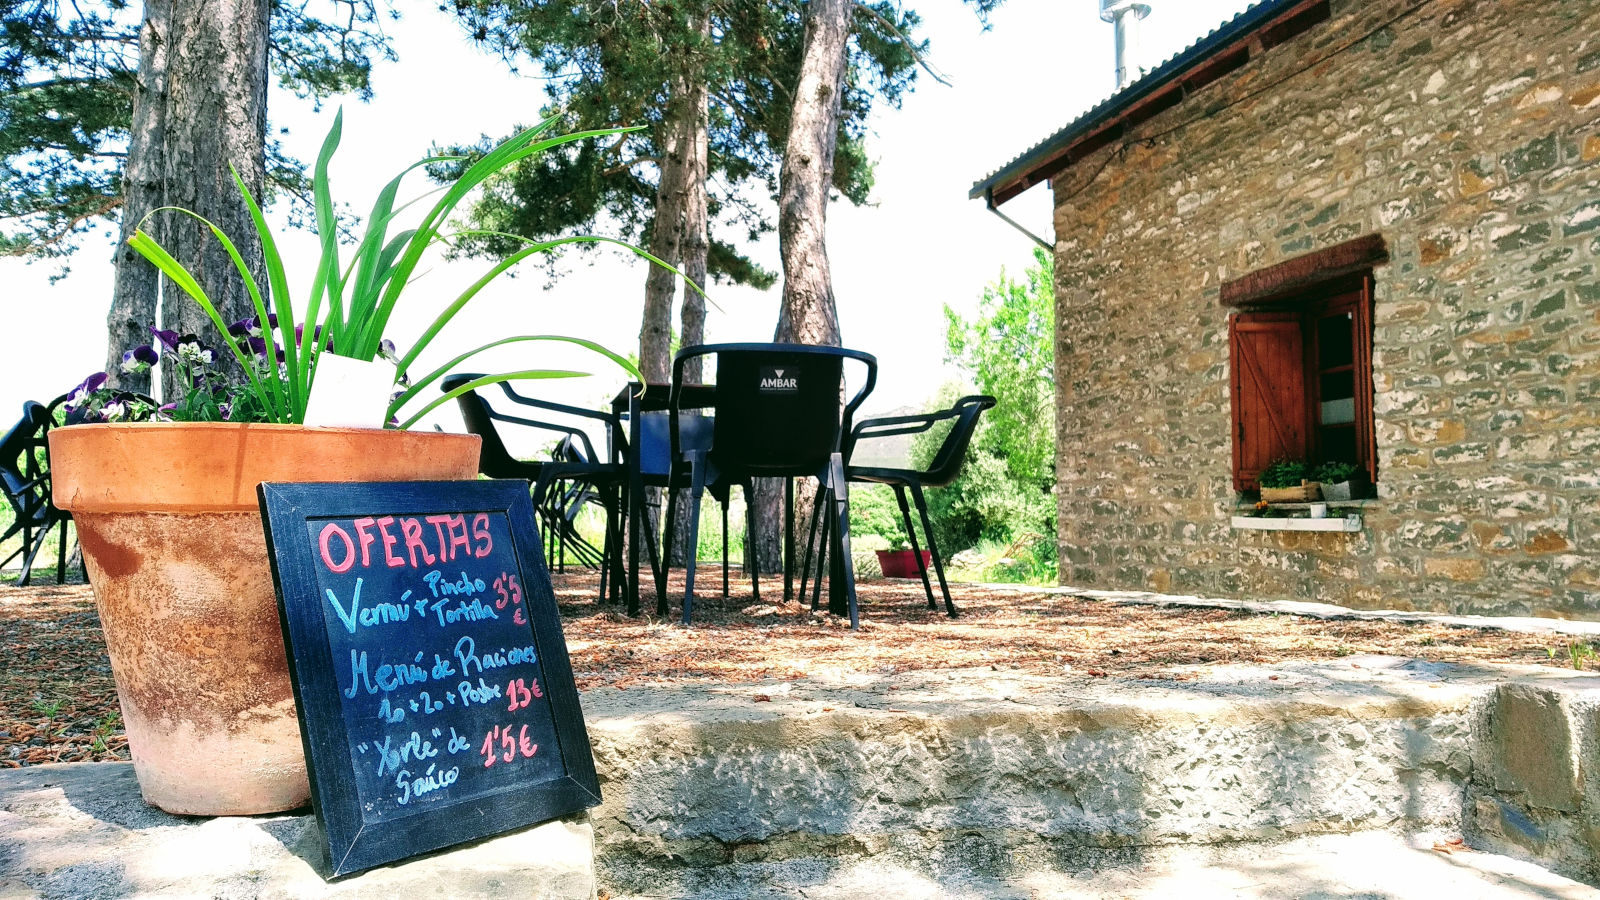 OFERTAS
Vermú + Pincho Tortilla 3'5 €
Menú de Raciones
1o + 2o + Postre 13€
"Xorle" de Saúco 1'5€
AMBAR